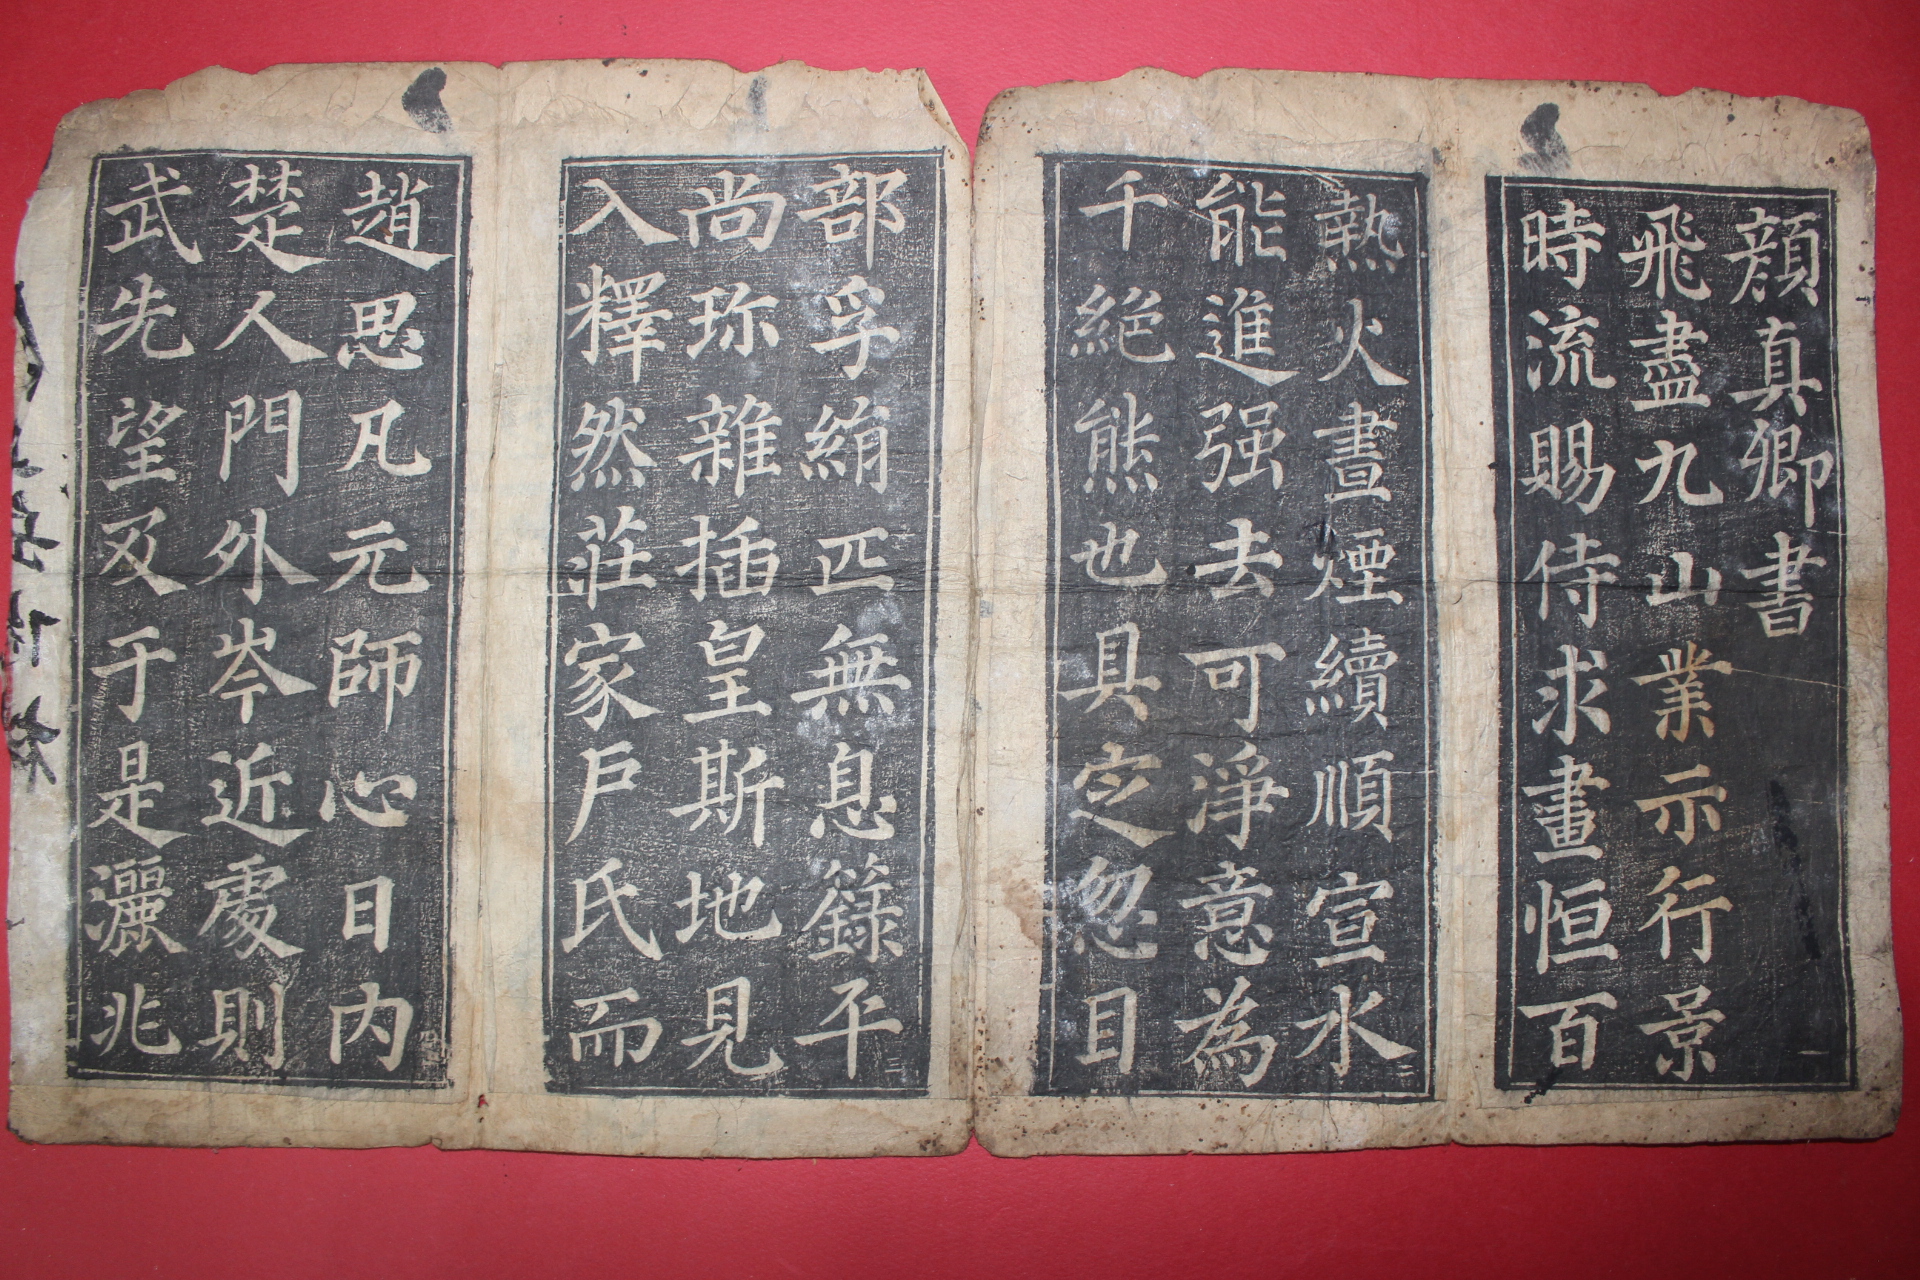 顔真卿書
飛盡九山業示行景
時流賜侍求畫恒百
一
熱火晝煙續順宣水
能進强去可淨意為
千絕熊也具定忽目
二
部孚絹匹無息籙平
尚珎雜插皇斯地見
入釋然莊家戶氏而
三
趙思凡元師心日内
楚人門外岑近處則
武先望及于是灑兆